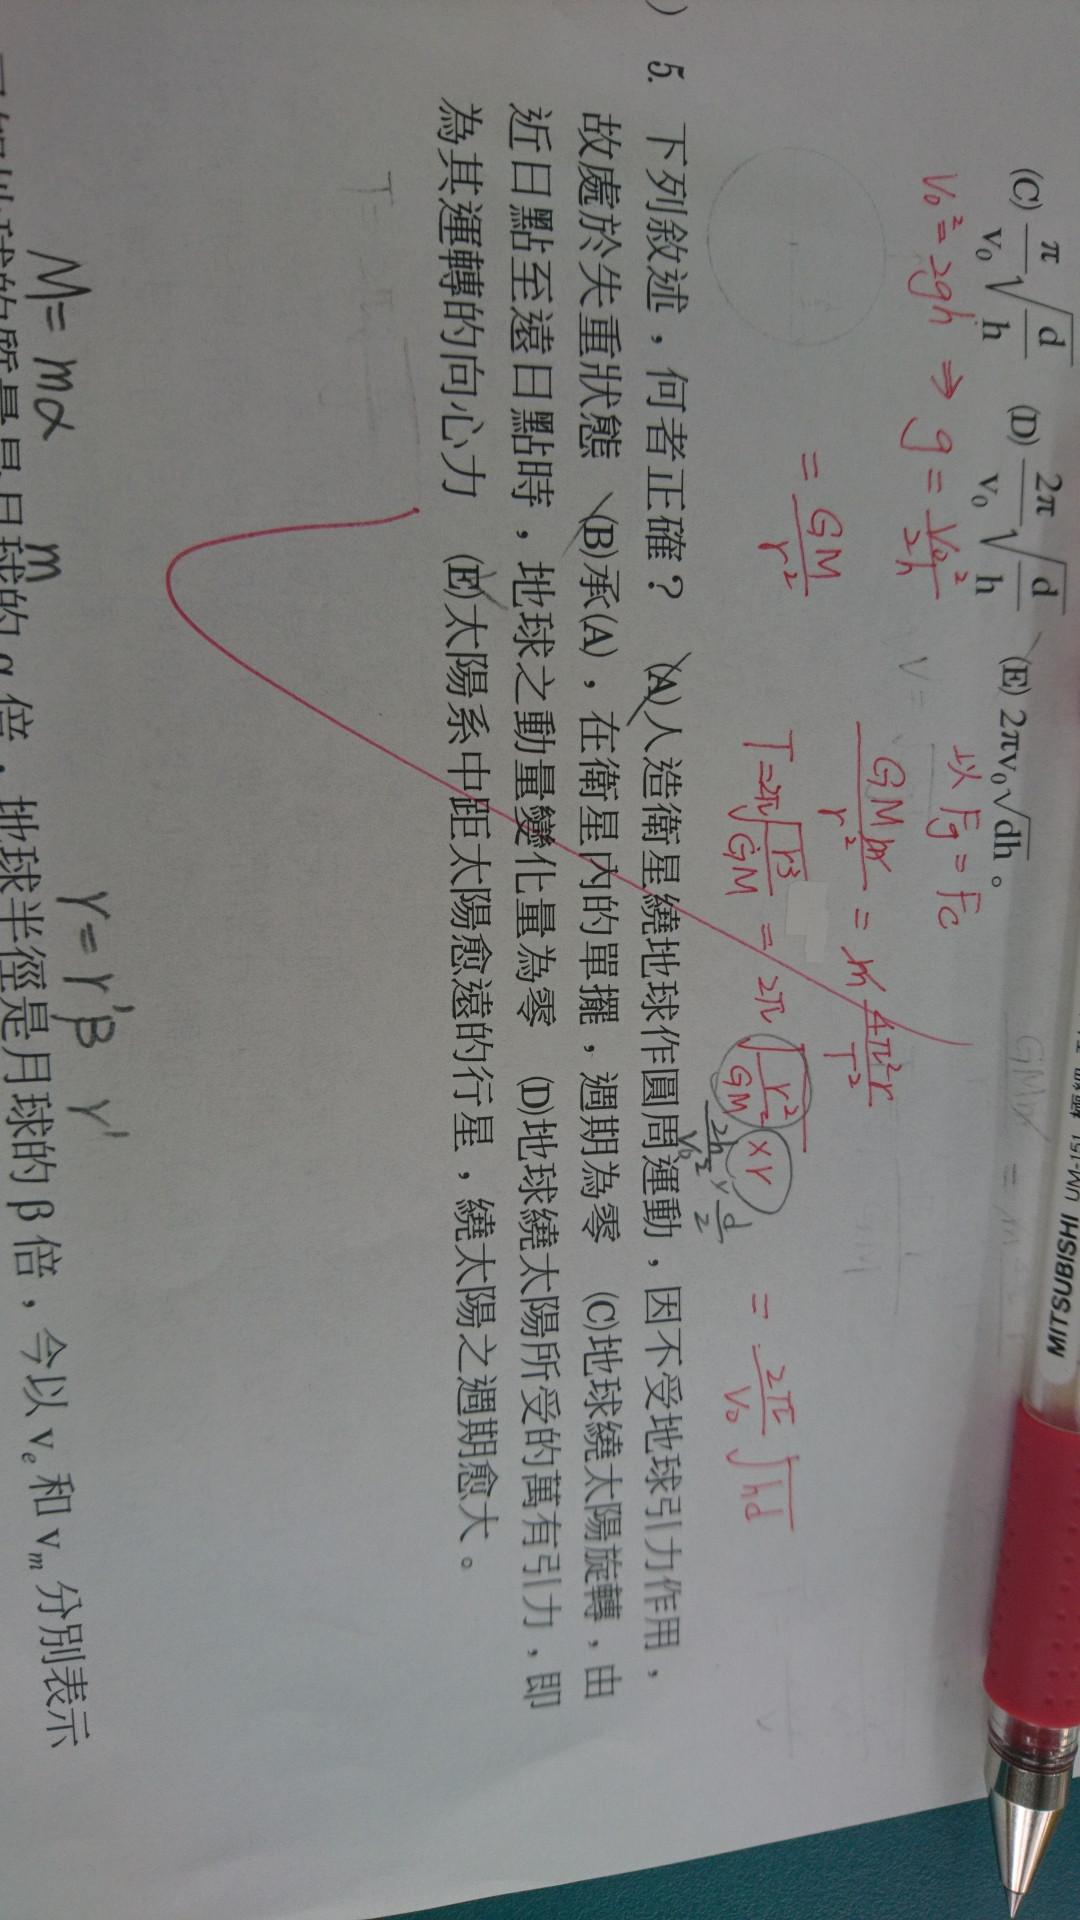 (C) π/v₀ √(d/h) (D) 2π/v₀ √(d/h) (E) 2πv₀√dh 。
以 Fg = Fc
V₀² = 2gh ⇒ g = V₀²/2h
= GM/r²
GMm/r² = m 4π²r/T²
T = 2π√(r³/GM) = 2π√(r²/GM × r) = 2π/V₀ √hd
2h/V₀² × d/2
5. 下列敘述，何者正確？ (A)人造衛星繞地球作圓周運動，因不受地球引力作用，
故處於失重狀態 (B)承(A)，在衛星內的單擺，週期為零 (C)地球繞太陽旋轉，由
近日點至遠日點時，地球之動量變化量為零 (D)地球繞太陽所受的萬有引力，即
為其運轉的向心力 (E)太陽系中距太陽愈遠的行星，繞太陽之週期愈大。
M = mα m r = r'β r'
地球的質量是月球的α倍，地球半徑是月球的β倍，今以 vₑ 和 vₘ 分別表示
MITSUBISHI UM-151